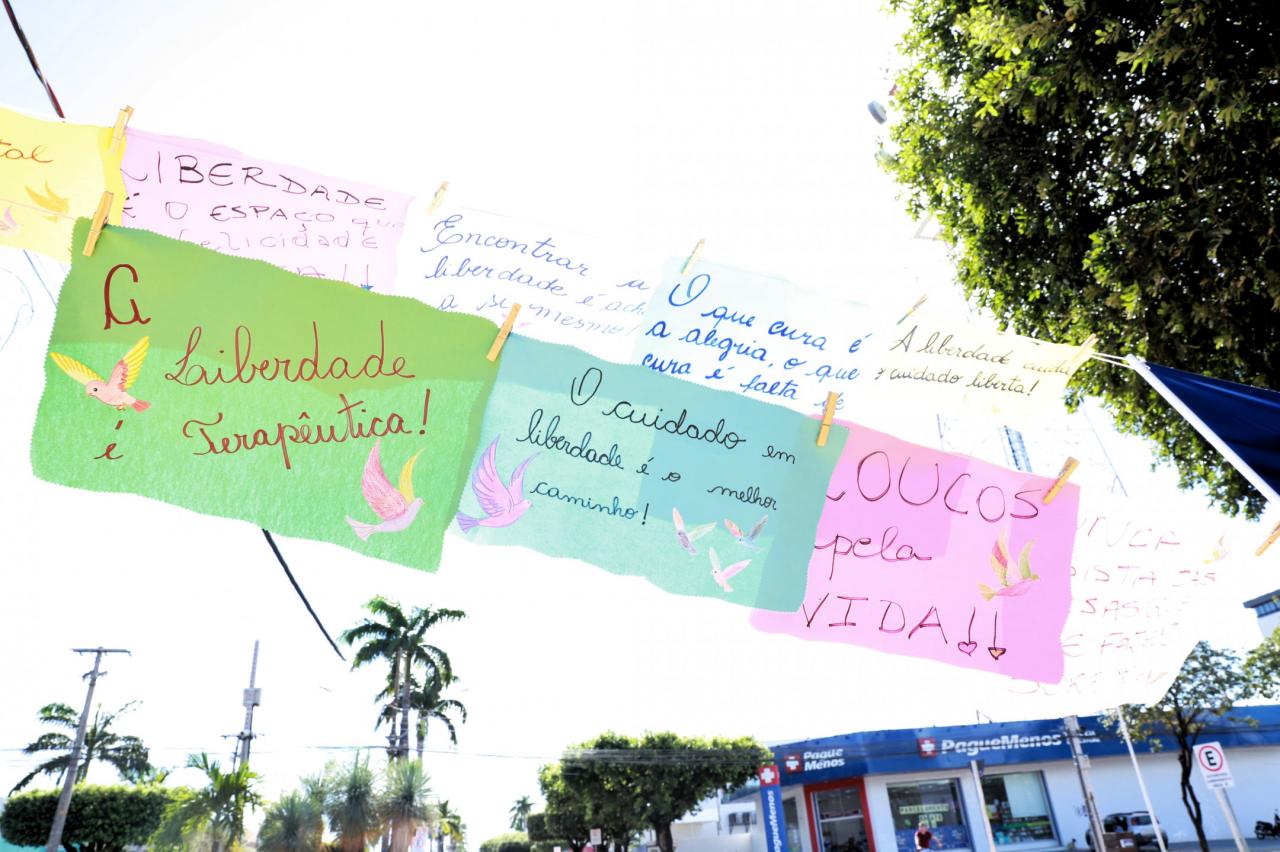 LIBERDADE
É O ESPAÇO que
felicidade
Encontrar a
liberdade é
a si mesmo!
O que cura é
a alegria, o que
cura é falta de
A liberdade cuida
cuidado liberta!
A
Liberdade
é Terapêutica!
O cuidado em
liberdade é o melhor
caminho!
LOUCOS
pela
VIDA!!
Pague
Menos
PagueMenos
PagueMenos
E